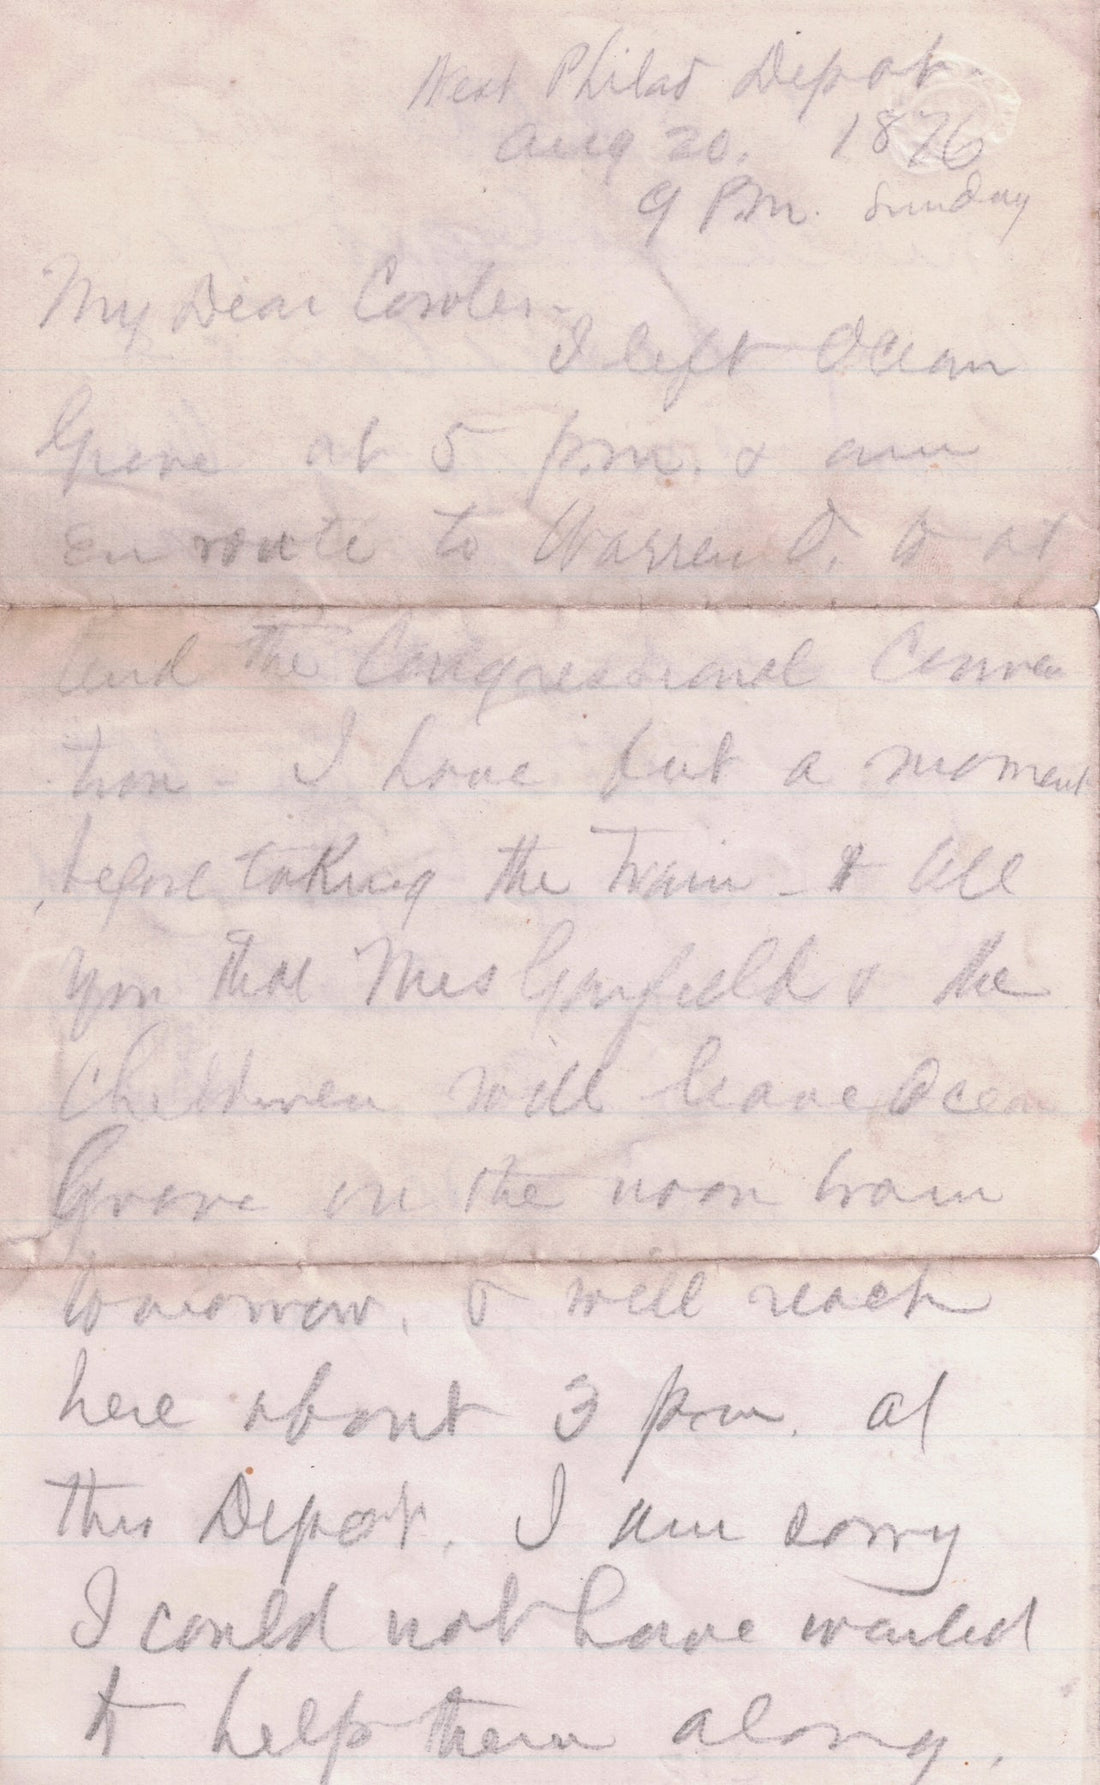 West Philad Depot
Aug 20. 1876
9 P.M. Sunday
My Dear Cowles-
I left Ocean
Grove at 5 p.m. & am
en route to Warren O. to at
tend the Congressional Conven
tion - I have but a moment
before taking the train - to tell
you that Mrs Garfield & the
Children will leave Ocean
Grove on the noon train
tomorrow, & will reach
here about 3 p.m. at
this Depot. I am sorry
I could not have waited
to help them along.